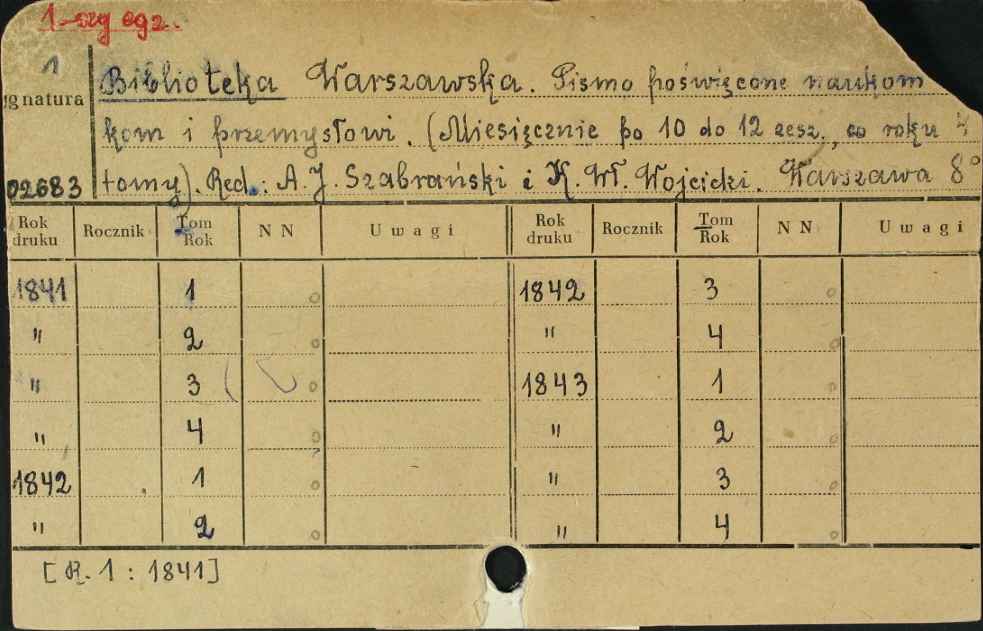 1-szy egz.
1
Biblioteka Warszawska. Pismo poświęcone naukom
gnatura
kom i przemysłowi. (Miesięcznie po 10 do 12 zesz., co roku 4
02683
tomy). Red.: A. J. Szabrański i K. Wł. Wojcicki. Warszawa 8°
Rok druku Rocznik Tom Rok NN Uwagi Rok druku Rocznik Tom Rok NN Uwagi
1841 1 1842 3
" 2 " 4
" 3 1843 1
" 4 " 2
1842 1 " 3
" 2 " 4
[R. 1 : 1841]